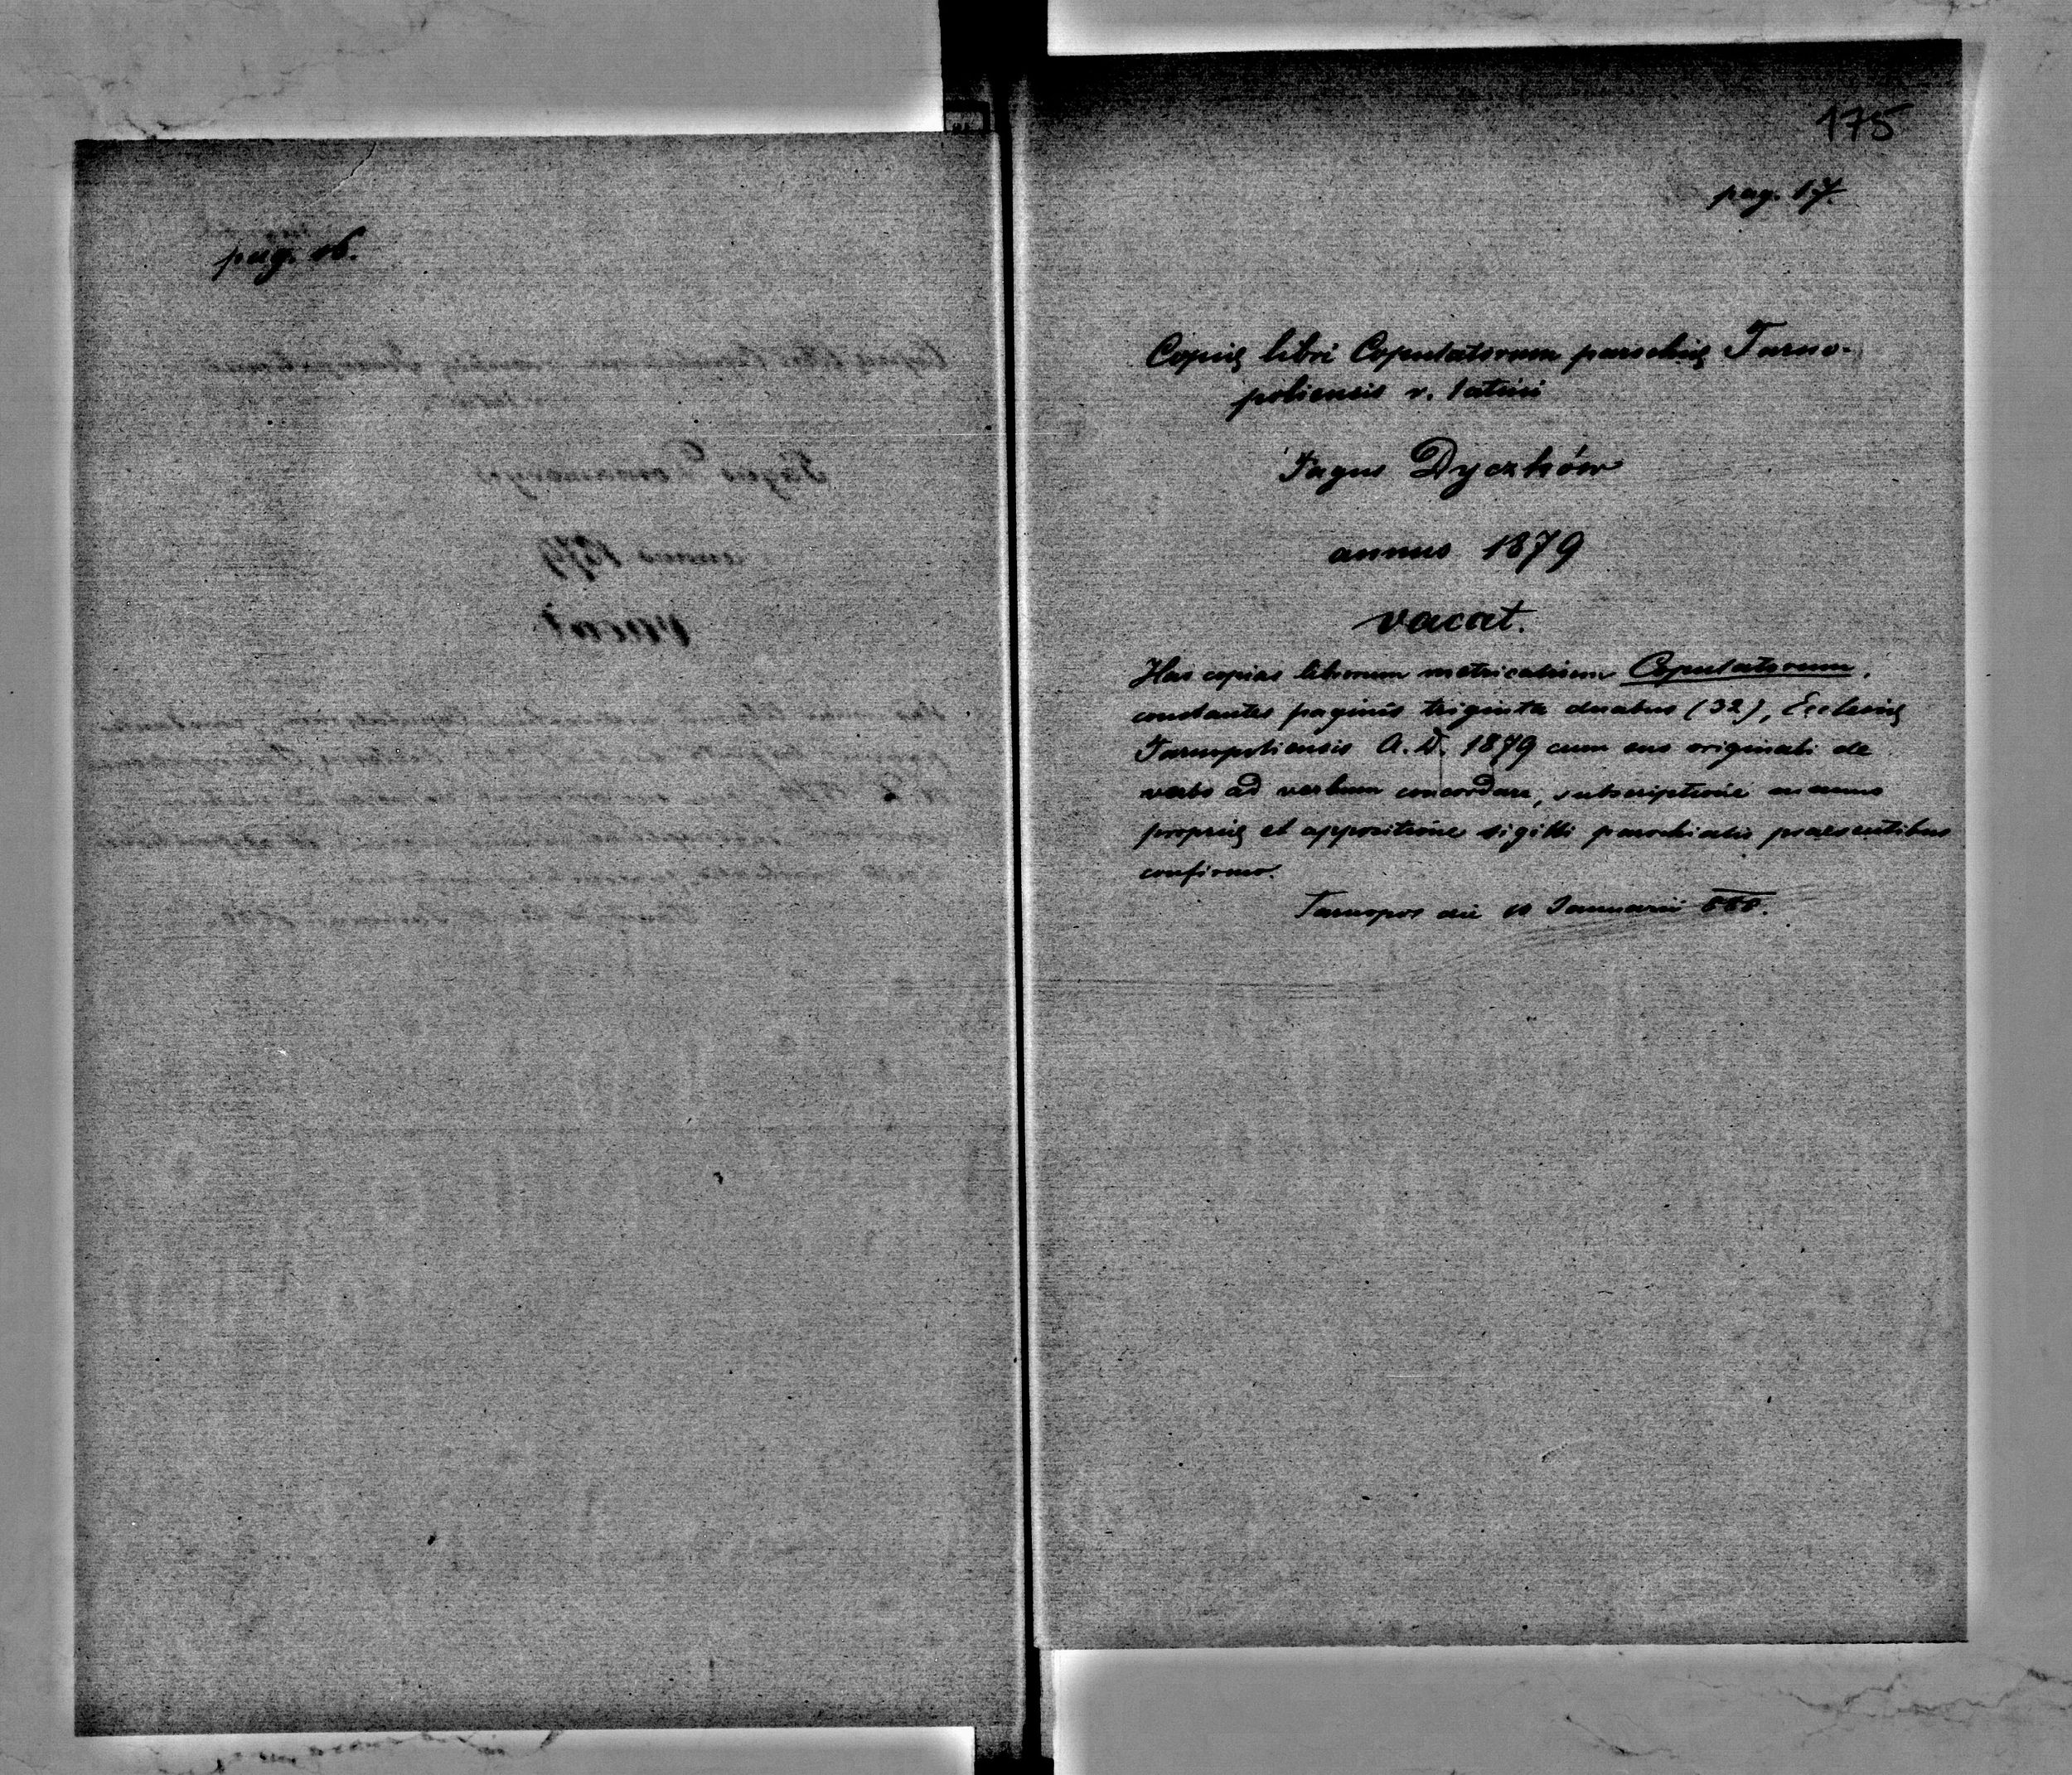 pag. 16.
175
pag. 17.
Copię libri Copulatorum parochię Tarno-
poliensis r. latini
Pagus Dyczków
annus 1879
vacat.
Has copias librorum metricalium Copulatorum,
constantes paginis triginta duabus (32), Ecclesię
Tarnopoliensis A. D. 1879 cum suo originali de
verbo ad verbum concordare, subscriptione manus
proprię et appositione sigilli parochialis praesentibus
confirmo.
Tarnopol die Januarii 880.